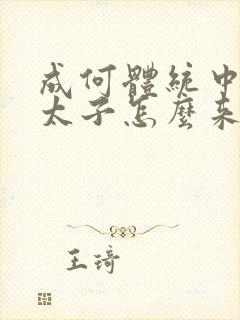 成何體統中
太子怎麼來
王琦